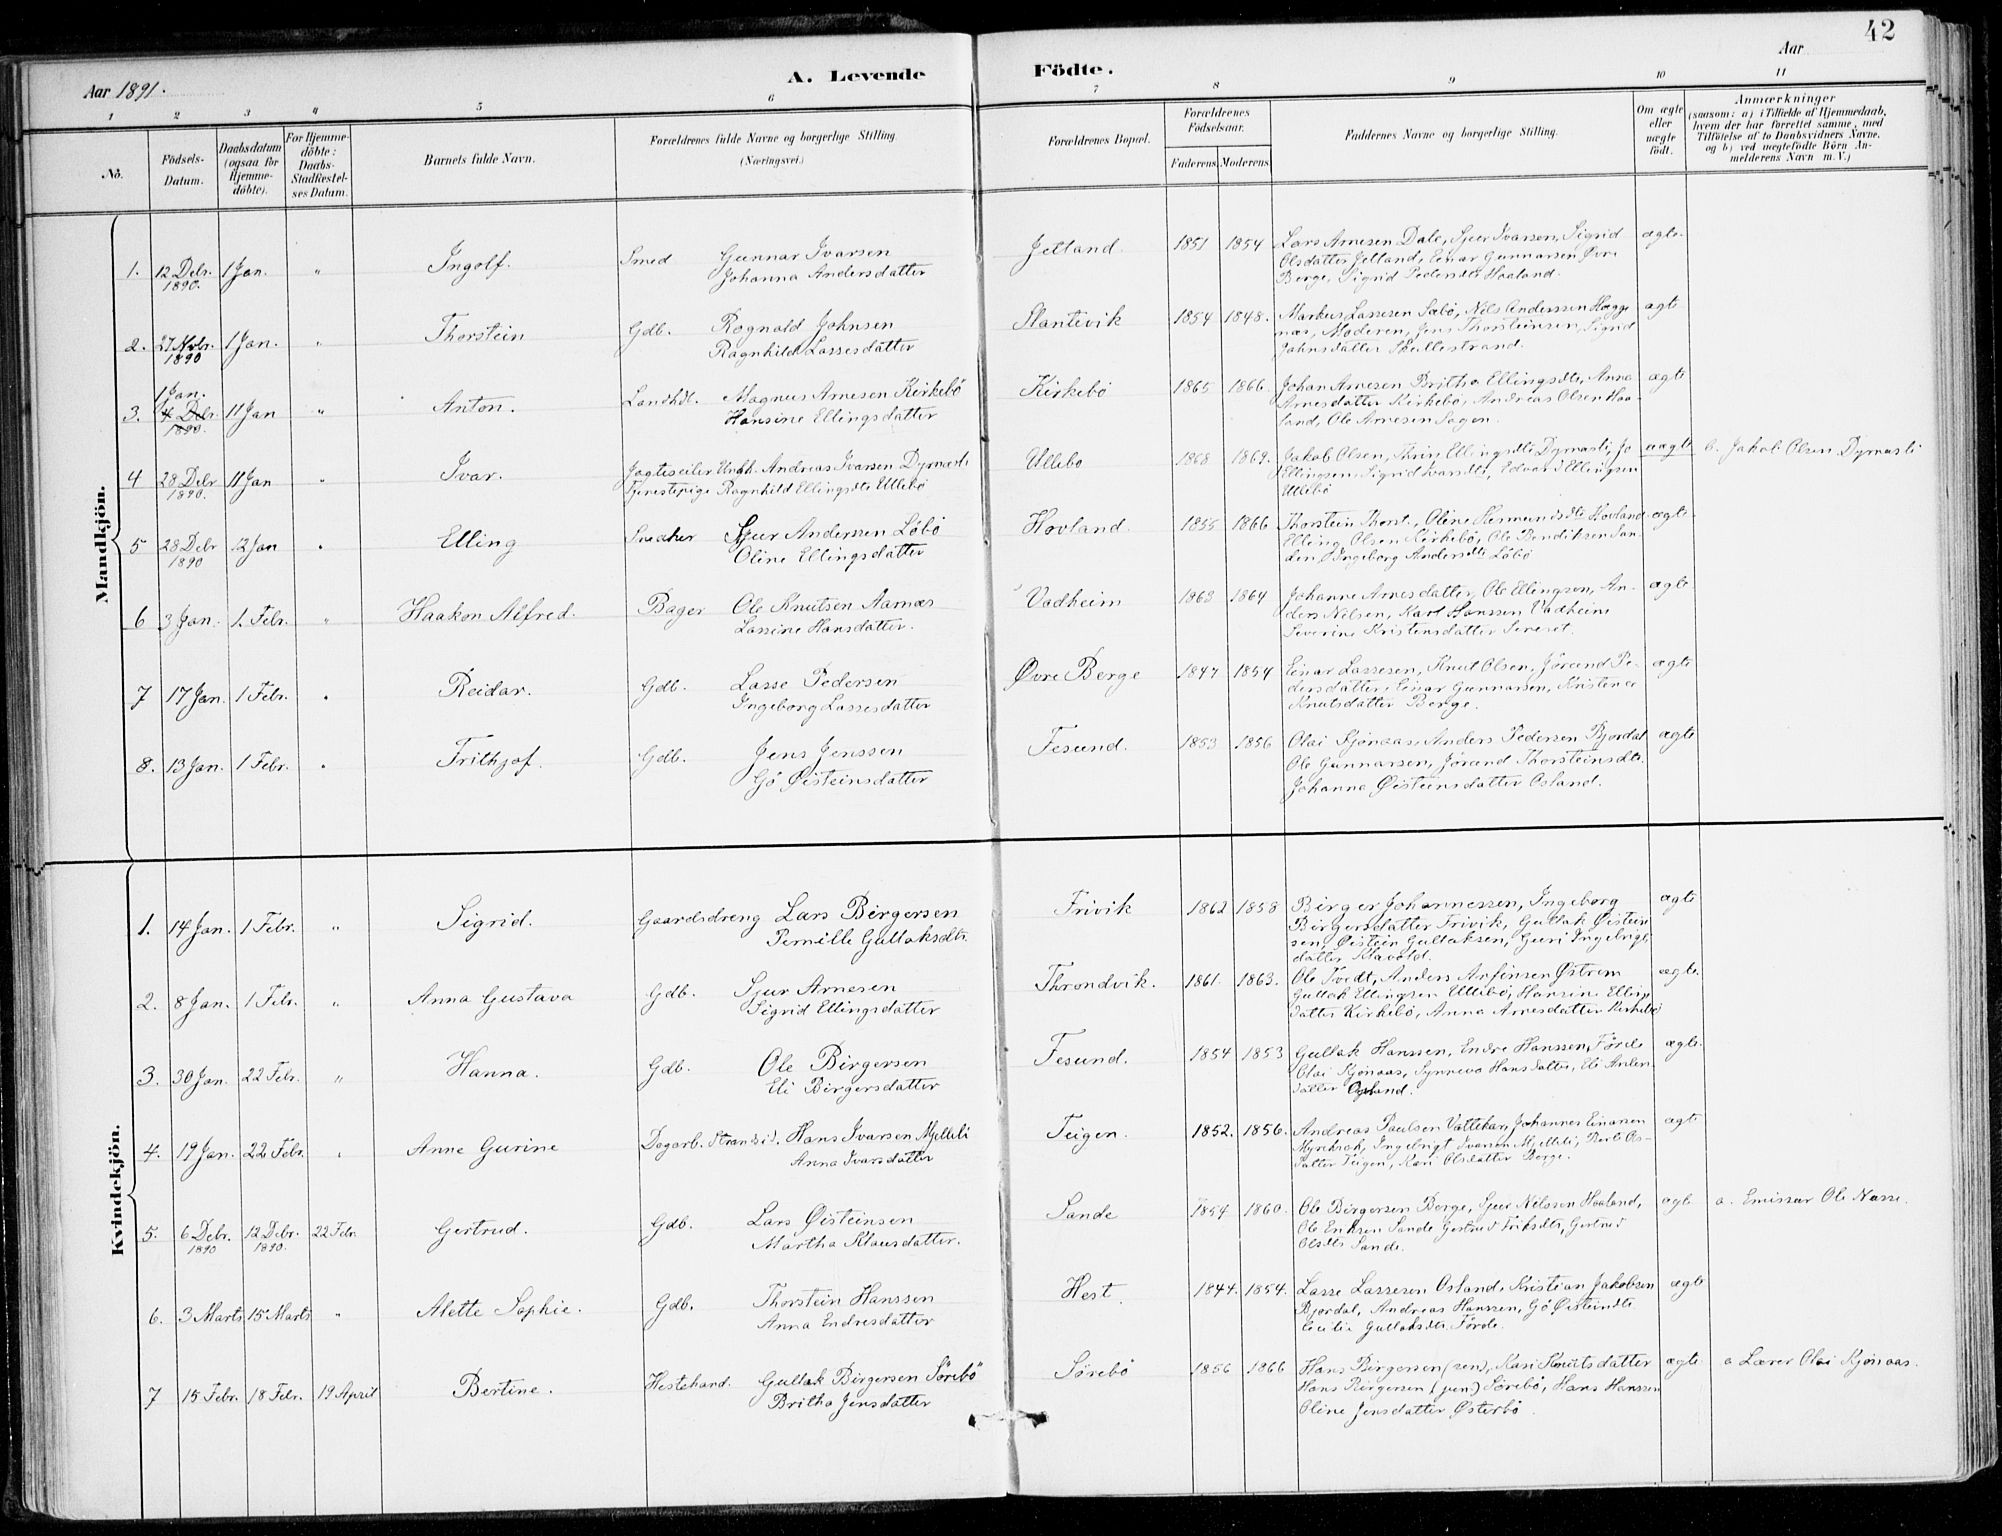 42
Aar 1891.
A. Levende Födte.
Aar
1 2 3 4 5 6 7 8 9 10 11
No.
Födsels-Datum.
Daabsdatum (ogsaa for Hjemme-döbte).
For Hjemme-döbte: Daabs-Stadfestel-ses Datum.
Barnets fulde Navn.
Forældrenes fulde Navne og borgerlige Stilling. (Næringsvei.)
Forældrenes Bopæl.
Forældrenes Födselsaar.
Faderens Moderens
Faddernes Navne og borgerlige Stilling.
Om ægte eller uægte födt.
Anmærkninger
(saasom: a) i Tilfælde af Hjemmedaab,
hvem der har forrettet samme, med
Tilföielse af to Daabsvidners Navne,
og b) ved uægtefödte Börn An-
melderens Navn m. V.)
Mandkjön.
1. 12 Debr. 1890. 1 Jan. " Ingolf. Smed Gunnar Ivarsen
Johanna Andersdatter
Jetland. 1851 1854 Lars Arnesen Dale, Sjur Ivarsen, Sigrid
Olsdatter Jetland, Einar Gunnarsen Øvre
Berge, Sigrid Pedersdtr Haaland.
ægte.
2. 27 Nvbr. 1890 1 Jan. " Thorstein Gdb. Rognald Johnsen
Ragnhild Lassesdatter
Slantevik 1854 1848. Markus Lassesen Sæbö, Nils Anderssen Hægge
næs, Moderen, Jens Thorsteinsen, Sigrid
Johnsdatter
ægte
3. 1 Jan. 4 Dbr 1890. 11 Jan " Anton. Landhdl. Magnus Arnesen Kirkebö
Hansine Ellingsdatter
Kirkebö 1865 1866. Johan Arnesen Britha Ellingsdtr, Anna
Arnesdatter Kirkebö, Andreas Olsen Haa-
land, Ole Arnesen Sagen.
ægte
4 28 Debr 1890. 11 Jan " Ivar. Jagtseiler Unbk. Andreas Ivarsen Dymæsli
Tjenestepige Ragnhild Ellingsdtr Ullebö
Ullebö 1868 1869. Jakob Olsen, Ellingsdtr Dymæsli, Jo
Ellingsen, Sigrid Ivarsdtr, Edvard Ellingsen
Ullebö
uægte b. Jakob Olsen Dymæsli
5 28 Debr 1890 12 Jan " Elling Snedker Sjur Anderssen Löbö
Oline Ellingsdatter
Hovland. 1855 1866 Thorstein Thorst., Oline Hermundsdtr Hovland
Elling Olsen Kirkebö, Ole Bendiksen San-
den, Ingeborg Andersdtr Löbö
ægte
6 3 Jan. 1. Febr. " Haakon Alfred. Bager Ole Knutsen Aarnæs
Lassine Hansdatter.
Vadheim 1863 1864 Johanne Arnesdatter, Ole Ellingsen, An-
ders Nilsen, Karl Hanssen Vadheim
Severine Kristensdatter
ægte
7 17 Jan. 1 Febr. " Reidar. Gdb. Lasse Pedersen
Ingeborg Lassesdatter
Øvre Berge 1847 1854 Einar Lassesen, Knut Olsen, Jörand Pe-
dersdatter, Einar Gunnarsen, Kristence
Knutsdatter Berge.
ægte
8. 13 Jan. 1 Febr. " Frithjof. Gdb. Jens Jenssen
Gjö Øisteinsdatter
Fesund. 1853 1856 Olai Kjönaas, Anders Pedersen Bjordal
Ole Gunnarsen, Jörand Thorsteinsdtr.
Johanna Øisteinsdatter Osland.
ægte
Kvindekjön.
1. 14 Jan. 1 Febr. " Sigrid. Gaardsdreng Lars Birgersen
Pernille Gullaksdtr.
Frivik 1862 1858 Birger Johannessen, Ingeborg
Birgersdatter Frivik, Gullak Øistein
sen, Øistein Gullaksen, Guri Ingebrigts
datter Klævold.
ægte
2. 8 Jan. 1 Febr. " Anna Gustava Gdb. Sjur Arnesen
Sigrid Ellingsdatter
Throndvik. 1861. 1863. Ole Tvedt, Anders Anfinsen Østrem
Gullak Ellingsen Ullebö, Hansine Ellings
datter Kirkebö, Anna Arnesdatter Kirkebö
ægte.
3. 30 Jan. 22 Febr. " Hanna. Gdb. Ole Birgersen
Eli Birgersdatter
Fesund. 1854 1853 Gullak Hanssen, Endre Hanssen, Förde
Olai Kjönaas, Synneva Hansdatter, Eli Anders
datter Osland.
ægte.
4. 19 Jan. 22 Febr. " Anne Gurine Dagarb. Strandsid. Hans Ivarsen Mjellli
Anna Ivarsdatter
Teigen. 1852. 1856. Andreas Paulsen Vattekar, Johannes Einarsen
Ingebrigt Ivarsen Mjelleli, Berte Ols-
datter Teigen, Kari Olsdatter Berge.
ægte
5. 6 Debr. 1890 12 Debr. 1890. 22 Febr. Gertrud. Gdb. Lars Øisteinsen
Martha Klausdatter.
Sande 1854 1860. Ole Birgersen Berge, Sjur Nilssen Haaland,
Ole Eriksen Sande Gertrud Eriksdtr, Gertrud
Olsdtr Sande.
ægte a. Emissær Ole Næsse.
6. 3 Marts 15 Marts " Alette Sophie. Gdb. Thorstein Hanssen
Anna Endresdatter
Hest. 1844. 1854. Lasse Lassesen Osland, Kristian Jakobsen
Bjordal, Andreas Hanssen, Gjö Øisteinsdtr.
Cecilie Gullaksdtr. Förde.
ægte
7 15 Febr. 18 Febr. 19 April Bertine. Hestehand. Gullak Birgersen Sörebö
Britha Jensdatter
Sörebö 1856 1866 Hans Birgersen (sen), Kari Knutsdatter
Hans Birgersen (jun.) Sörebö, Hans Hanssen
Oline Jensdatter Østerbö.
ægte a Lærer Olai Kjönaas.